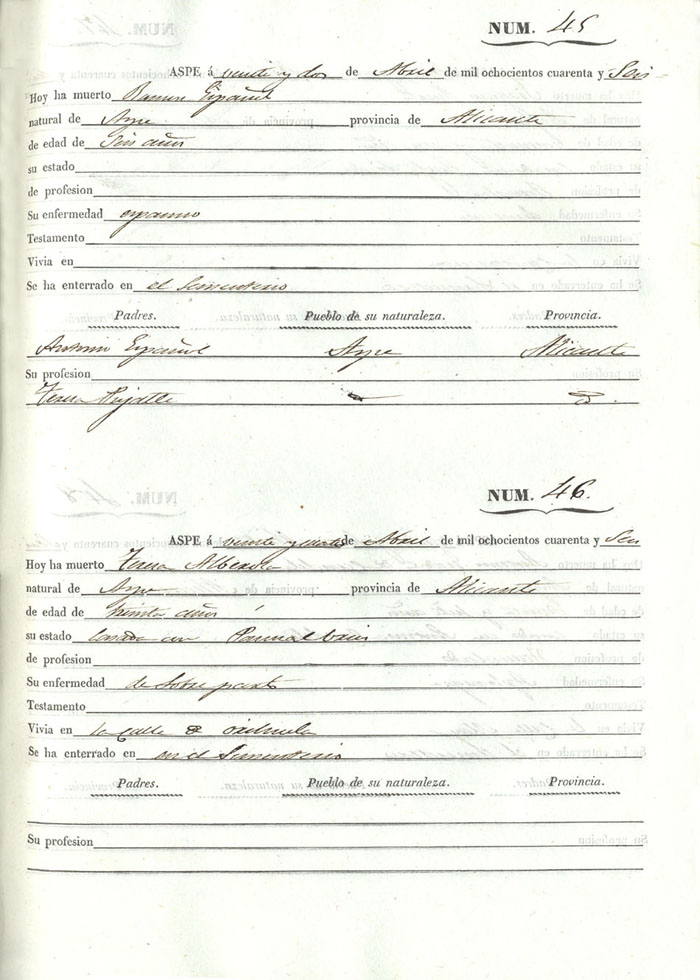 NUM. 45
ASPE á veinte y dos de Abril de mil ochocientos cuarenta y Seis
Hoy ha muerto Ramon Español
natural de Aspe provincia de Alicante
de edad de Seis años
su estado
de profesion
Su enfermedad
Testamento
Vivia en
Se ha enterrado en el Sementerio
Padres. Pueblo de su naturaleza. Provincia.
Antonio Español Aspe Alicante
Su profesion
Teresa
NUM. 46.
ASPE á veinte y de Abril de mil ochocientos cuarenta y Seis
Hoy ha muerto Teresa Alberola
natural de Aspe provincia de Alicante
de edad de treinta años
su estado Casada con
de profesion
Su enfermedad de Sobre parto
Testamento
Vivia en la Calle de orihuela
Se ha enterrado en en el Sementerio
Padres. Pueblo de su naturaleza. Provincia.
Su profesion